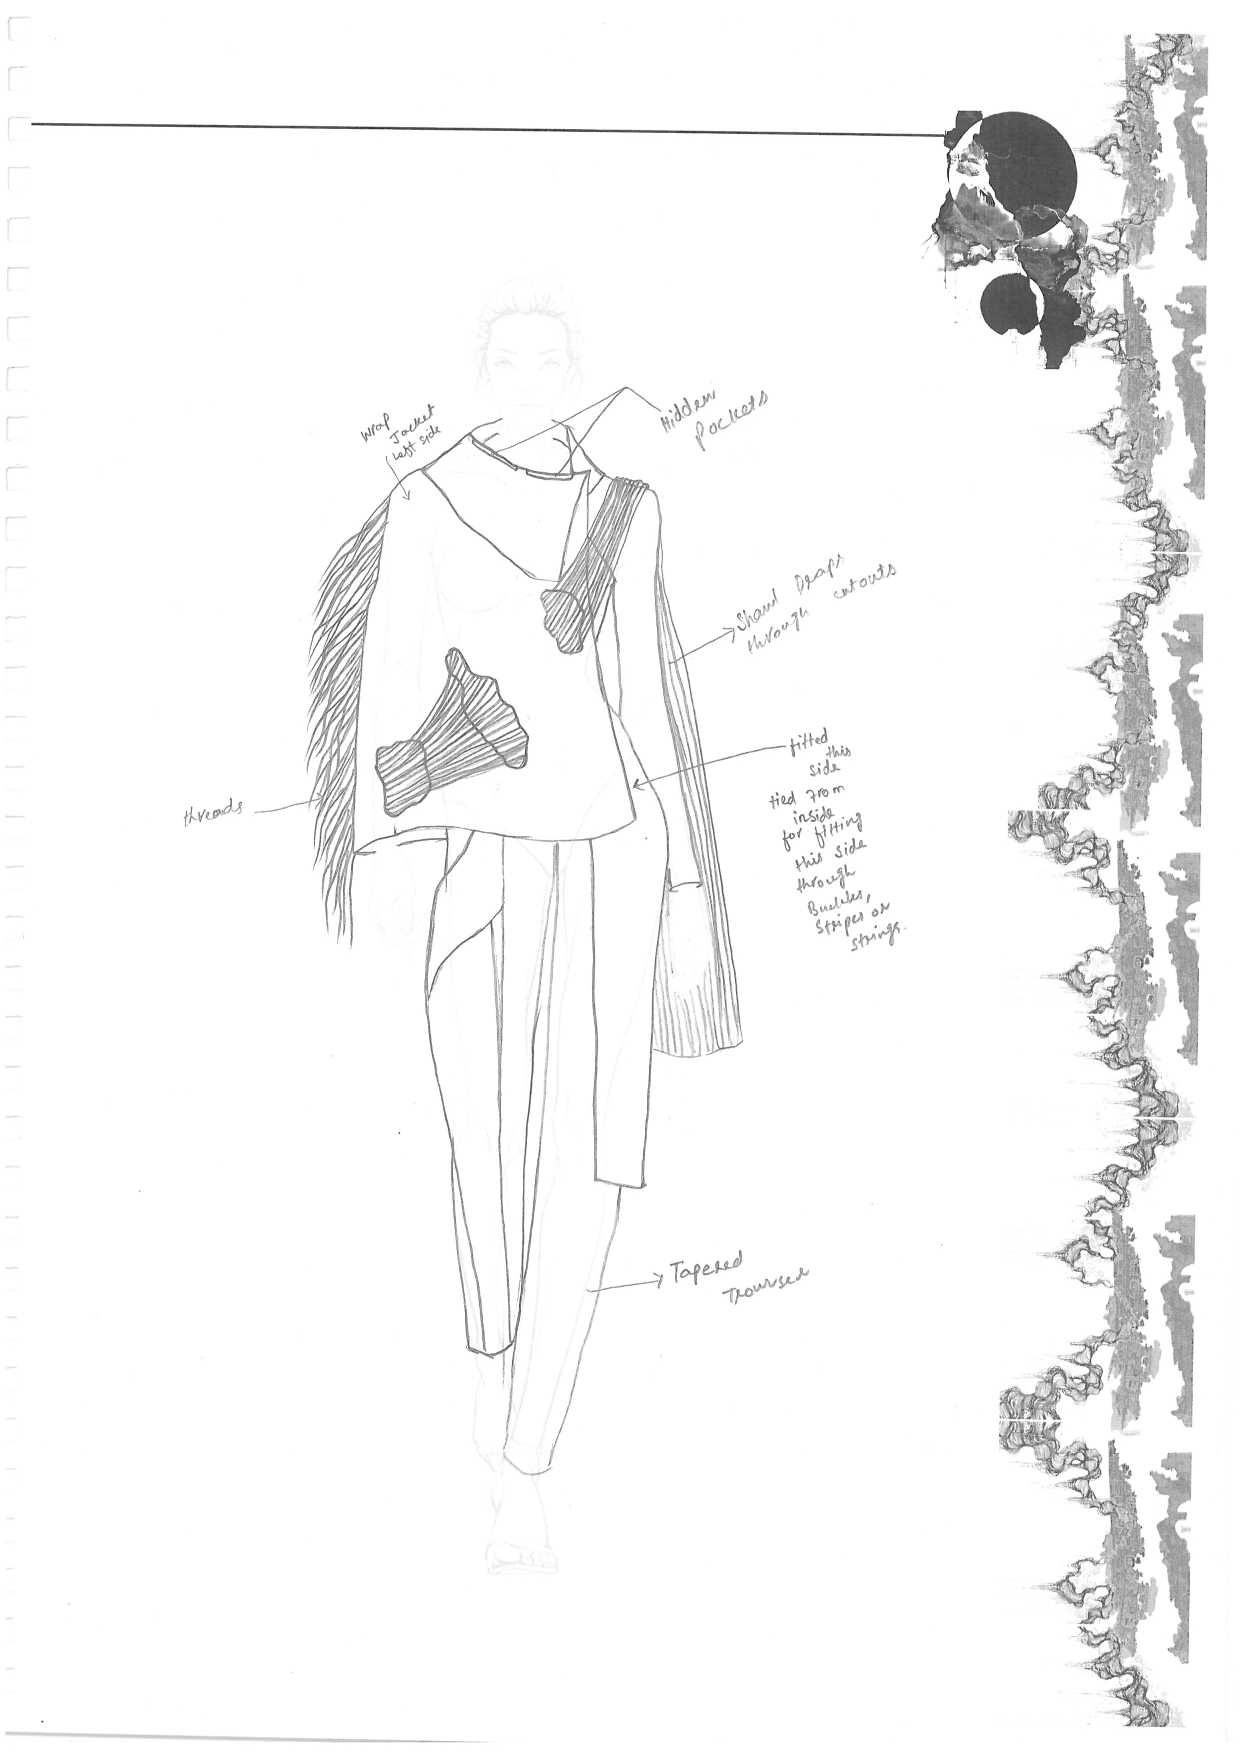 Wrap
Jacket
Left side
Hidden
Pockets
Shawl Draps
through cutouts
fitted
this
side
tied from
inside
for fitting
this side
through
Buckles,
Stripes or
strings.
threads
Tapered
Trouser